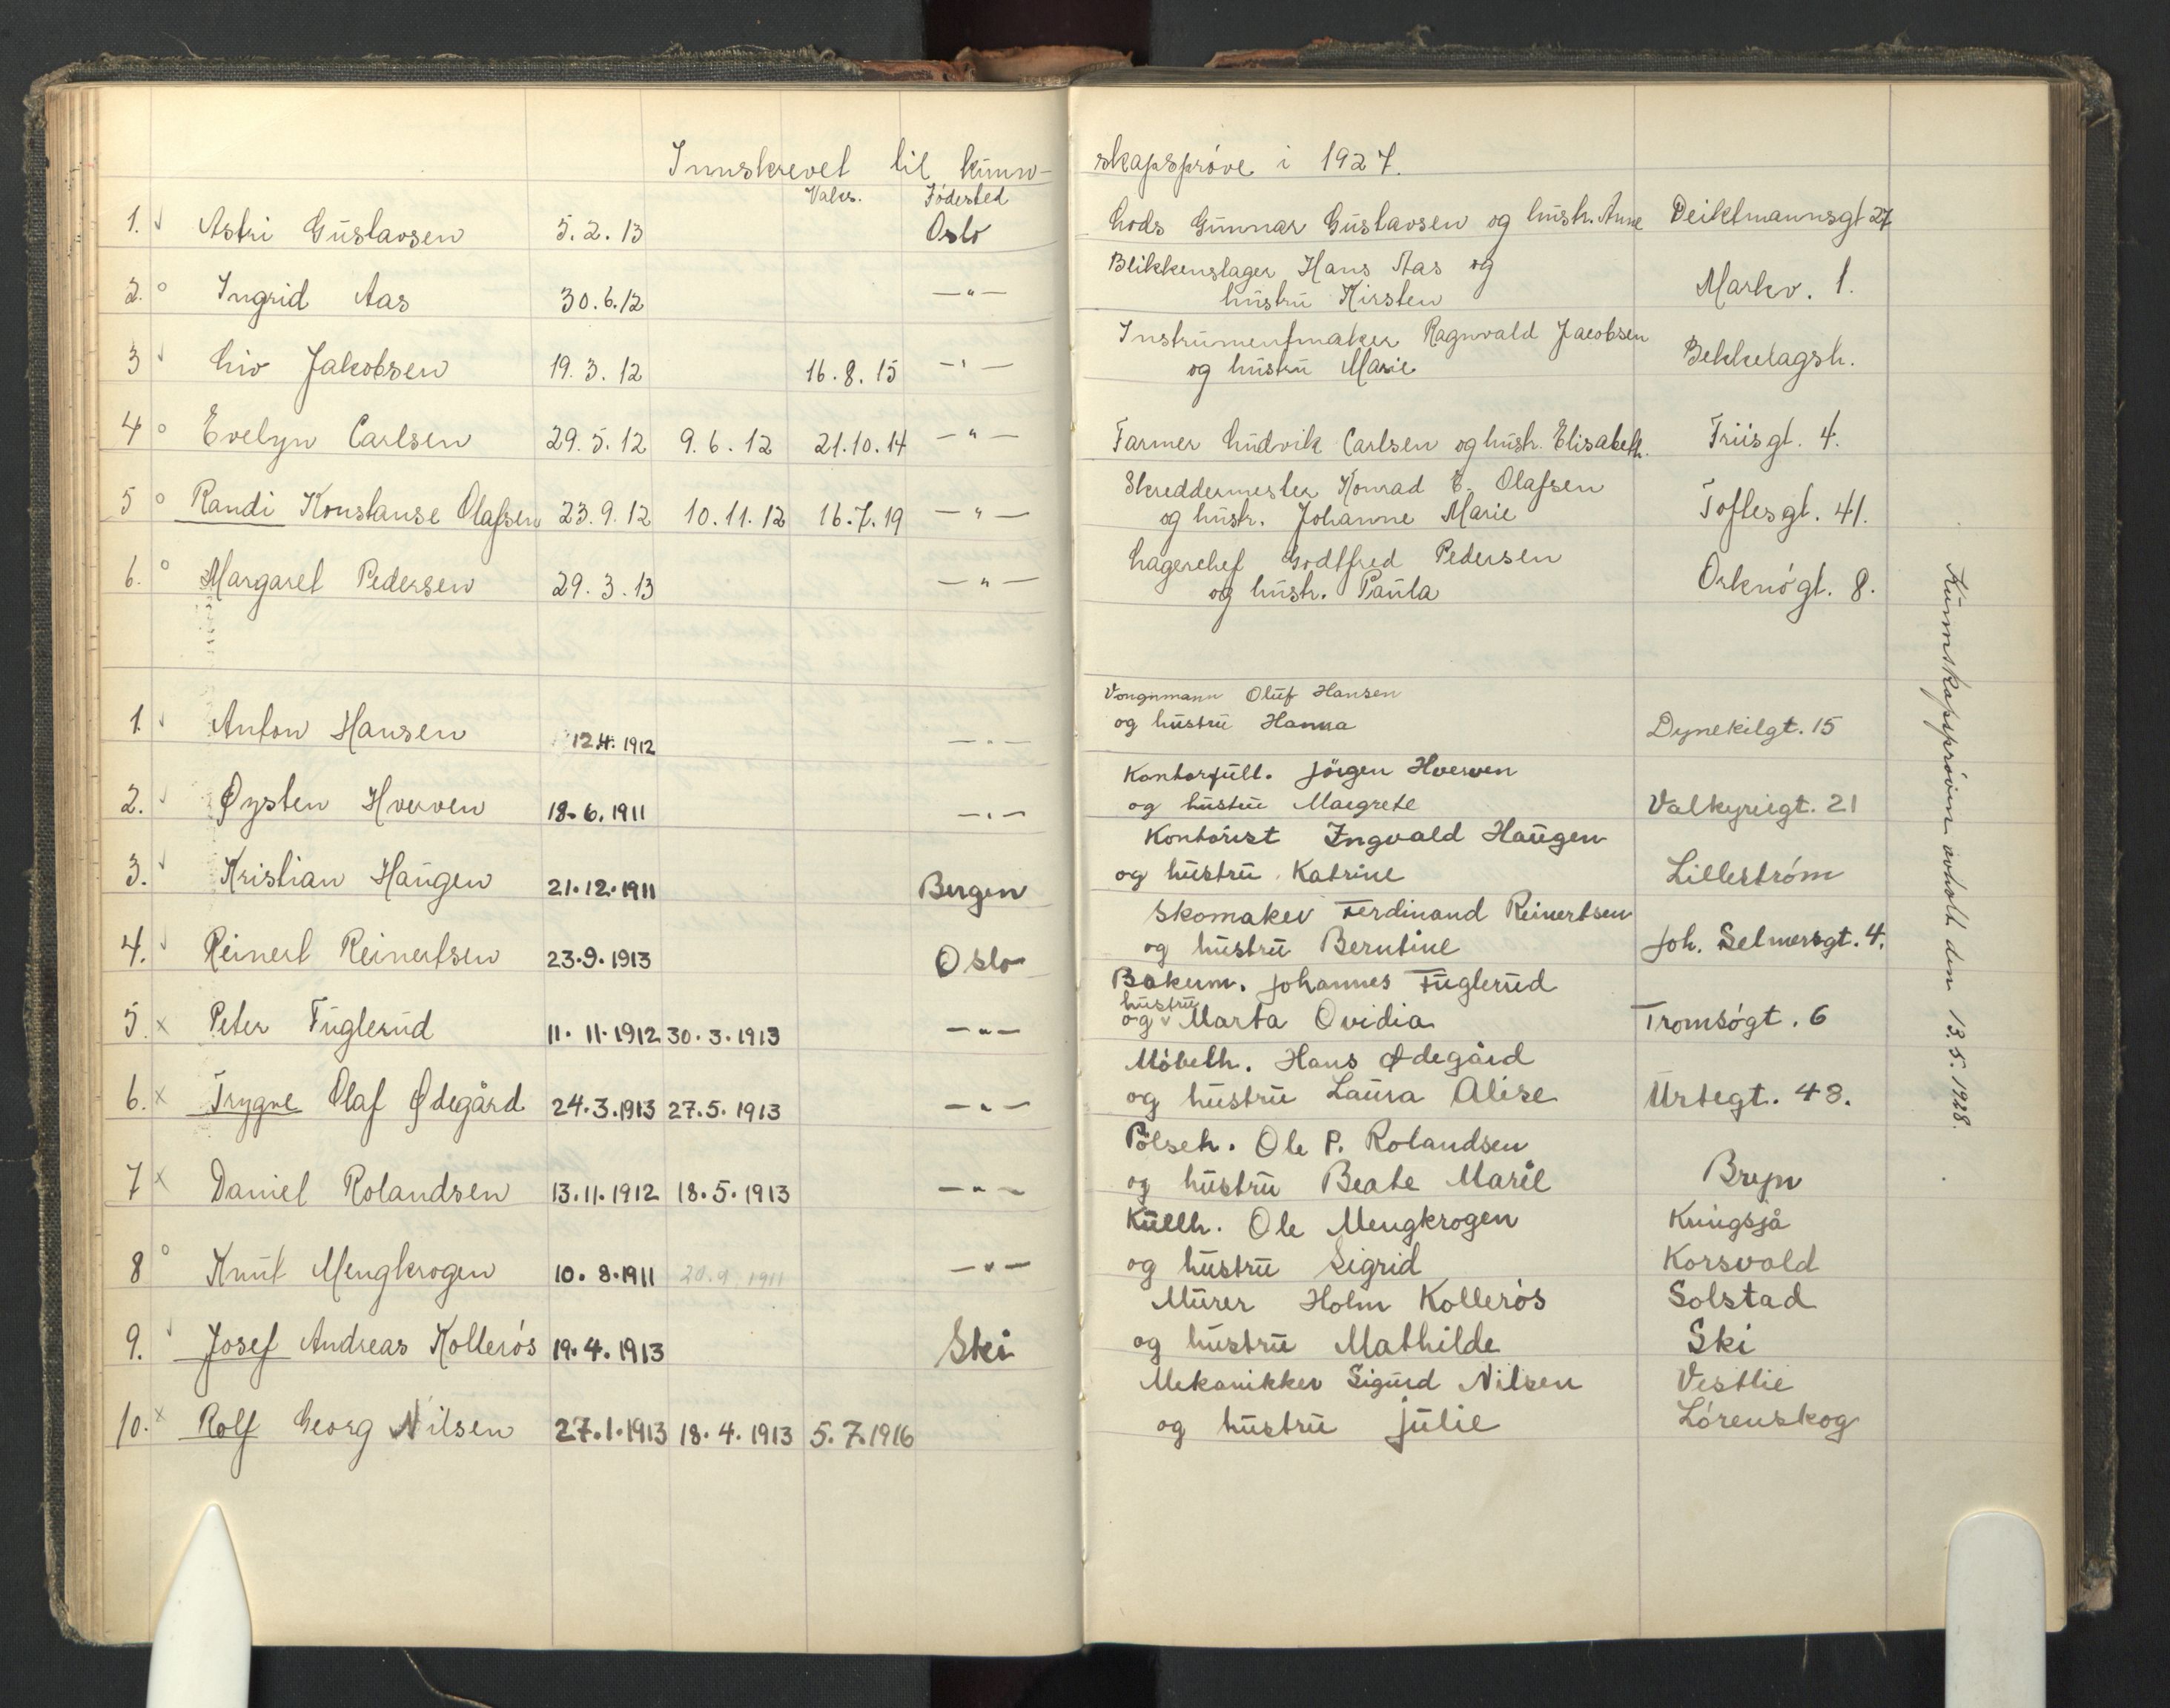 Innskrevet til kunn-
Vaks. Födested
1. √ Astri Gustavsen 5.2.13 Oslo
2. o Ingrid Aas 30.6.12 —"—
3 √ Liv Jakobsen 19.3.12 16.8.15 —"—
4 o Evelyn Carlsen 29.5.12 9.6.12 21.10.14 —"—
5 o Randi Konstanse Olafsen 23.9.12 10.11.12 16.7.19 —"—
6. o Margaret Pedersen 29.3.13 —"—
1. √ Anton Hansen 12.4.1912 —"—
2. √ Øysten Hverven 18.6.1911 —"—
3. √ Kristian Haugen 21.12.1911 Bergen
4. √ Reinert Reinertsen 23.9.1913 Oslo
5 x Peter Fuglerud 11.11.1912 30.3.1913 —"—
6. x Trygve Olaf Ødegård 24.3.1913 27.5.1913 —"—
7 x Daniel Rolandsen 13.11.1912 18.5.1913 —"—
8 o Knut Mengkrogen 10.8.1911 20.9.1911 —"—
9. √ Josef Andreas Kollerös 19.4.1913 Ski
10. x Rolf Georg Nilsen 27.1.1913 18.4.1913 5.7.1916
skapspröve i 1927.
Lods Gunnar Gustavsen og hustr. Anne Deiklmannsgt 27
Blikkenslager Hans Aas og
hustru Kirsten Markv. 1.
Instrumentmaker Ragnvald Jacobsen
og hustru Marie Bekkelagsh.
Farmer Ludvik Carlsen og hustr. Elisabeth. Friisgt. 4.
Skreddermester Konrad E. Olafsen
og hustr. Johanne Marie Toftesgt. 41.
Lagerchef Godtfred Pedersen
og hustr. Paula Orknögt. 8.
Vongnmann Oluf Hansen
og hustru Hanna Dynekilgt. 15
Kontorfull. Jörgen Hverven
og hustru Margrete Valkyriegt. 21
Kontorist Ingvald Haugen
og hustru Katrine Lilleström
Skomaker Ferdinand Reinertsen
og hustru Berntine Joh. Selmersgt. 4.
Bokerm. Johannes Fuglerud
hustru
og v Marta Ovidia Tromsögt. 6
Möbelh. Hans Ødegård
og hustru Laura Alise Urtegt. 43.
Pölseh. Ole P. Rolandsen
og hustru Beate Marie Bryn
Kullh. Ole Mengkrogen Kringsjå
og hustru Sigrid Korsvold
Murer Holm Kollerös Solstad
og hustru Mathilde Ski
Mekanikker Sigurd Nilsen Vestlie
og hustru Julie Lörenskog
Kunnskapspröven avholt den 13.5.1928.